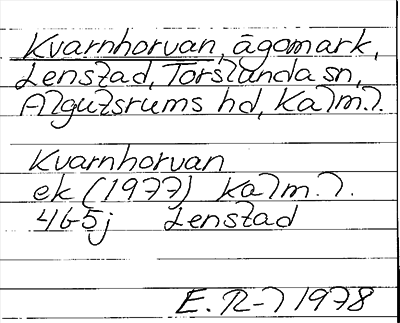 Kvarnhorvan, ägomark,
Lenstad, Torslunda sn,
Algutsrums hd, Kalm. l.
Kvarnhorvan
ek (1977) Kalm. l.
4G5j Lenstad
E. R-l 1978